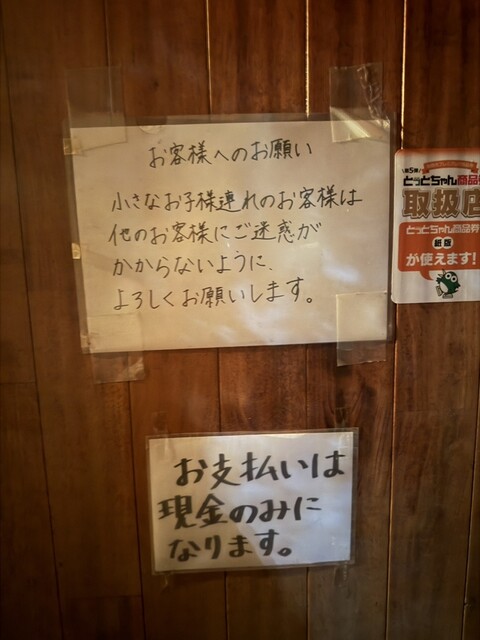 お客様へのお願い
小さなお子様連れのお客様は
他のお客様にご迷惑が
かからないように、
よろしくお願いします。
お支払いは
現金のみに
なります。
第5弾
とっとちゃん商品券
取扱店
とっとちゃん商品券
紙版
が使えます!